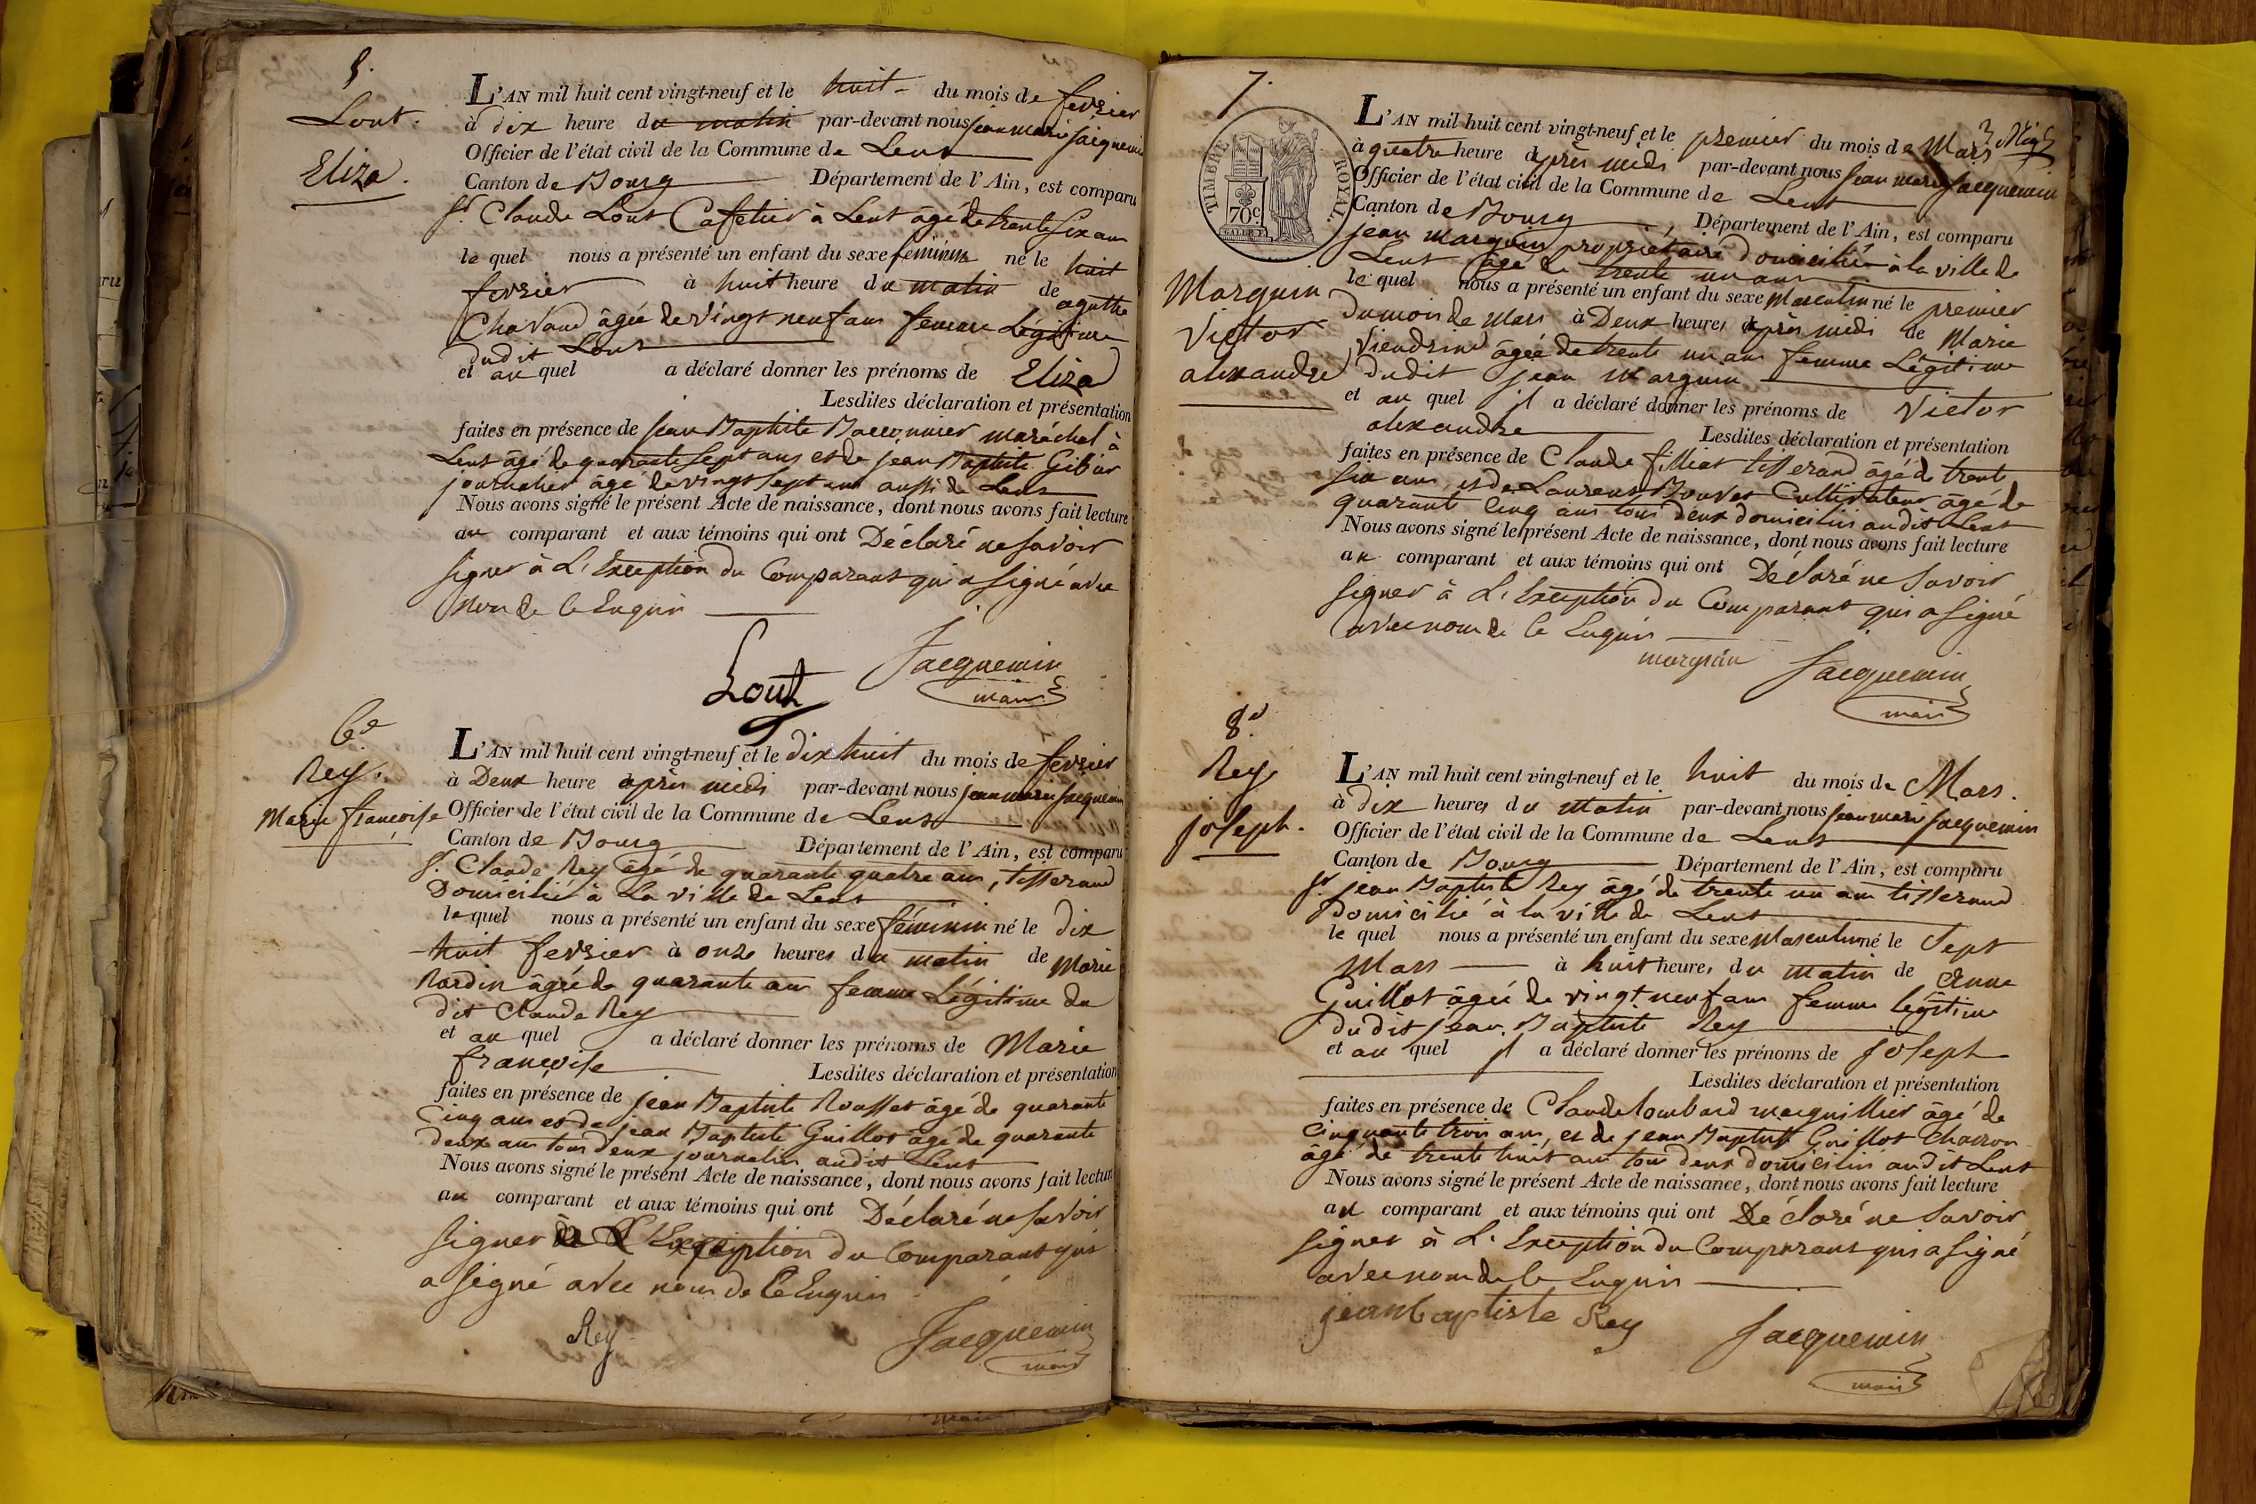 5.
Lout.
Eliza.
L'AN mil huit cent vingt-neuf et le huit du mois de fevrier
à dix heure du matin par-devant nous jean marie jacquemin
Officier de l'état civil de la Commune de Lent
Canton de Bourg Département de l'Ain, est comparu
Sr. Claude Lout Cafetier à Lent âgé de trente six ans
le quel nous a présenté un enfant du sexe féminin né le huit
fevrier à huit heure du matin de agathe
Chavand âgée de vingt neuf ans femme Légitime
dudit Lout
et au quel a déclaré donner les prénoms de Eliza
Lesdites déclaration et présentation
faites en présence de jean Baptiste maréchal à
Lent âgé de quarante sept ans et de jean Baptiste
journalier âgé de vingt sept ans aussi de Lent
Nous avons signé le présent Acte de naissance, dont nous avons fait lecture
au comparant et aux témoins qui ont Déclaré ne savoir
signer à L'Exception du Comparant qui a signé avec
nous de ce Enquis
Lout Jacquemin
maire
6e
Rey.
Marie françoise
L'AN mil huit cent vingt-neuf et le dix huit du mois de fevrier
à Deux heure après midi par-devant nous jean marie jacquemin
Officier de l'état civil de la Commune de Lent
Canton de Bourg Département de l'Ain, est comparu
Sr. Claude Rey âgé de quarante quatre ans, tisserand
Domicilié à La ville de Lent
le quel nous a présenté un enfant du sexe féminin né le dix
huit fevrier à onze heures du matin de Marie
Nardin âgée de quarante ans femme Légitime du
dit Claude Rey
et au quel a déclaré donner les prénoms de Marie
françoise Lesdites déclaration et présentation
faites en présence de jean Baptiste Rousset âgé de quarante
Cinq ans et de jean Baptiste Guillot âgé de quarante
deux ans tous deux journalier audit Lent
Nous avons signé le présent Acte de naissance, dont nous avons fait lecture
au comparant et aux témoins qui ont Déclaré ne savoir
signer à L'Exception du Comparant qui
a signé avec nous de ce Enquis
Rey Jacquemin
maire
7.
TIMBRE ROYAL.
70c
Marguin
Victor
alexandre
L'AN mil huit cent vingt-neuf et le premier du mois de Mars
à quatre heure après midi par-devant nous jean marie jacquemin
Officier de l'état civil de la Commune de Lent
Canton de Bourg, Département de l'Ain, est comparu
jean marguin propriétaire domicilié à la ville de
Lent âgé de trente un ans
le quel nous a présenté un enfant du sexe Masculin né le premier
du mois de Mars à Deux heures après midi de Marie
âgée de trente un ans femme Légitime
dudit jean Marguin
et au quel il a déclaré donner les prénoms de Victor
alexandre Lesdites déclaration et présentation
faites en présence de Claude filliat tisserand âgé de trente
six ans, et de Laurent Bouvet Cultivateur âgé de
quarante Cinq ans tous deux domiciliés audit Lent
Nous avons signé le présent Acte de naissance, dont nous avons fait lecture
au comparant et aux témoins qui ont Déclaré ne savoir
signer à L'Exception du Comparant qui a signé
avec nous de ce Enquis
marguin Jacquemin
maire
8e.
Rey
joseph.
L'AN mil huit cent vingt-neuf et le huit du mois de Mars.
à dix heures du matin par-devant nous jean marie jacquemin
Officier de l'état civil de la Commune de Lent
Canton de Bourg Département de l'Ain, est comparu
Sr. jean Baptiste Rey âgé de trente un ans tisserand
domicilié à la ville de Lent
le quel nous a présenté un enfant du sexe Masculin né le Sept
Mars à huit heures du matin de Anne
Guillot âgée de vingt neuf ans femme légitime
dudit jean Baptiste Rey
et au quel il a déclaré donner les prénoms de joseph
Lesdites déclaration et présentation
faites en présence de Claude lombard marguillier âgé de
Cinquante trois ans, et de jean Baptiste Guillot Charron
âgé de trente huit ans tous deux domiciliés audit Lent
Nous avons signé le présent Acte de naissance, dont nous avons fait lecture
au comparant et aux témoins qui ont Déclaré ne Savoir
signer à L'Exception du Comparant qui a signé
avec nous de ce Enquis
jean baptiste Rey Jacquemin
maire